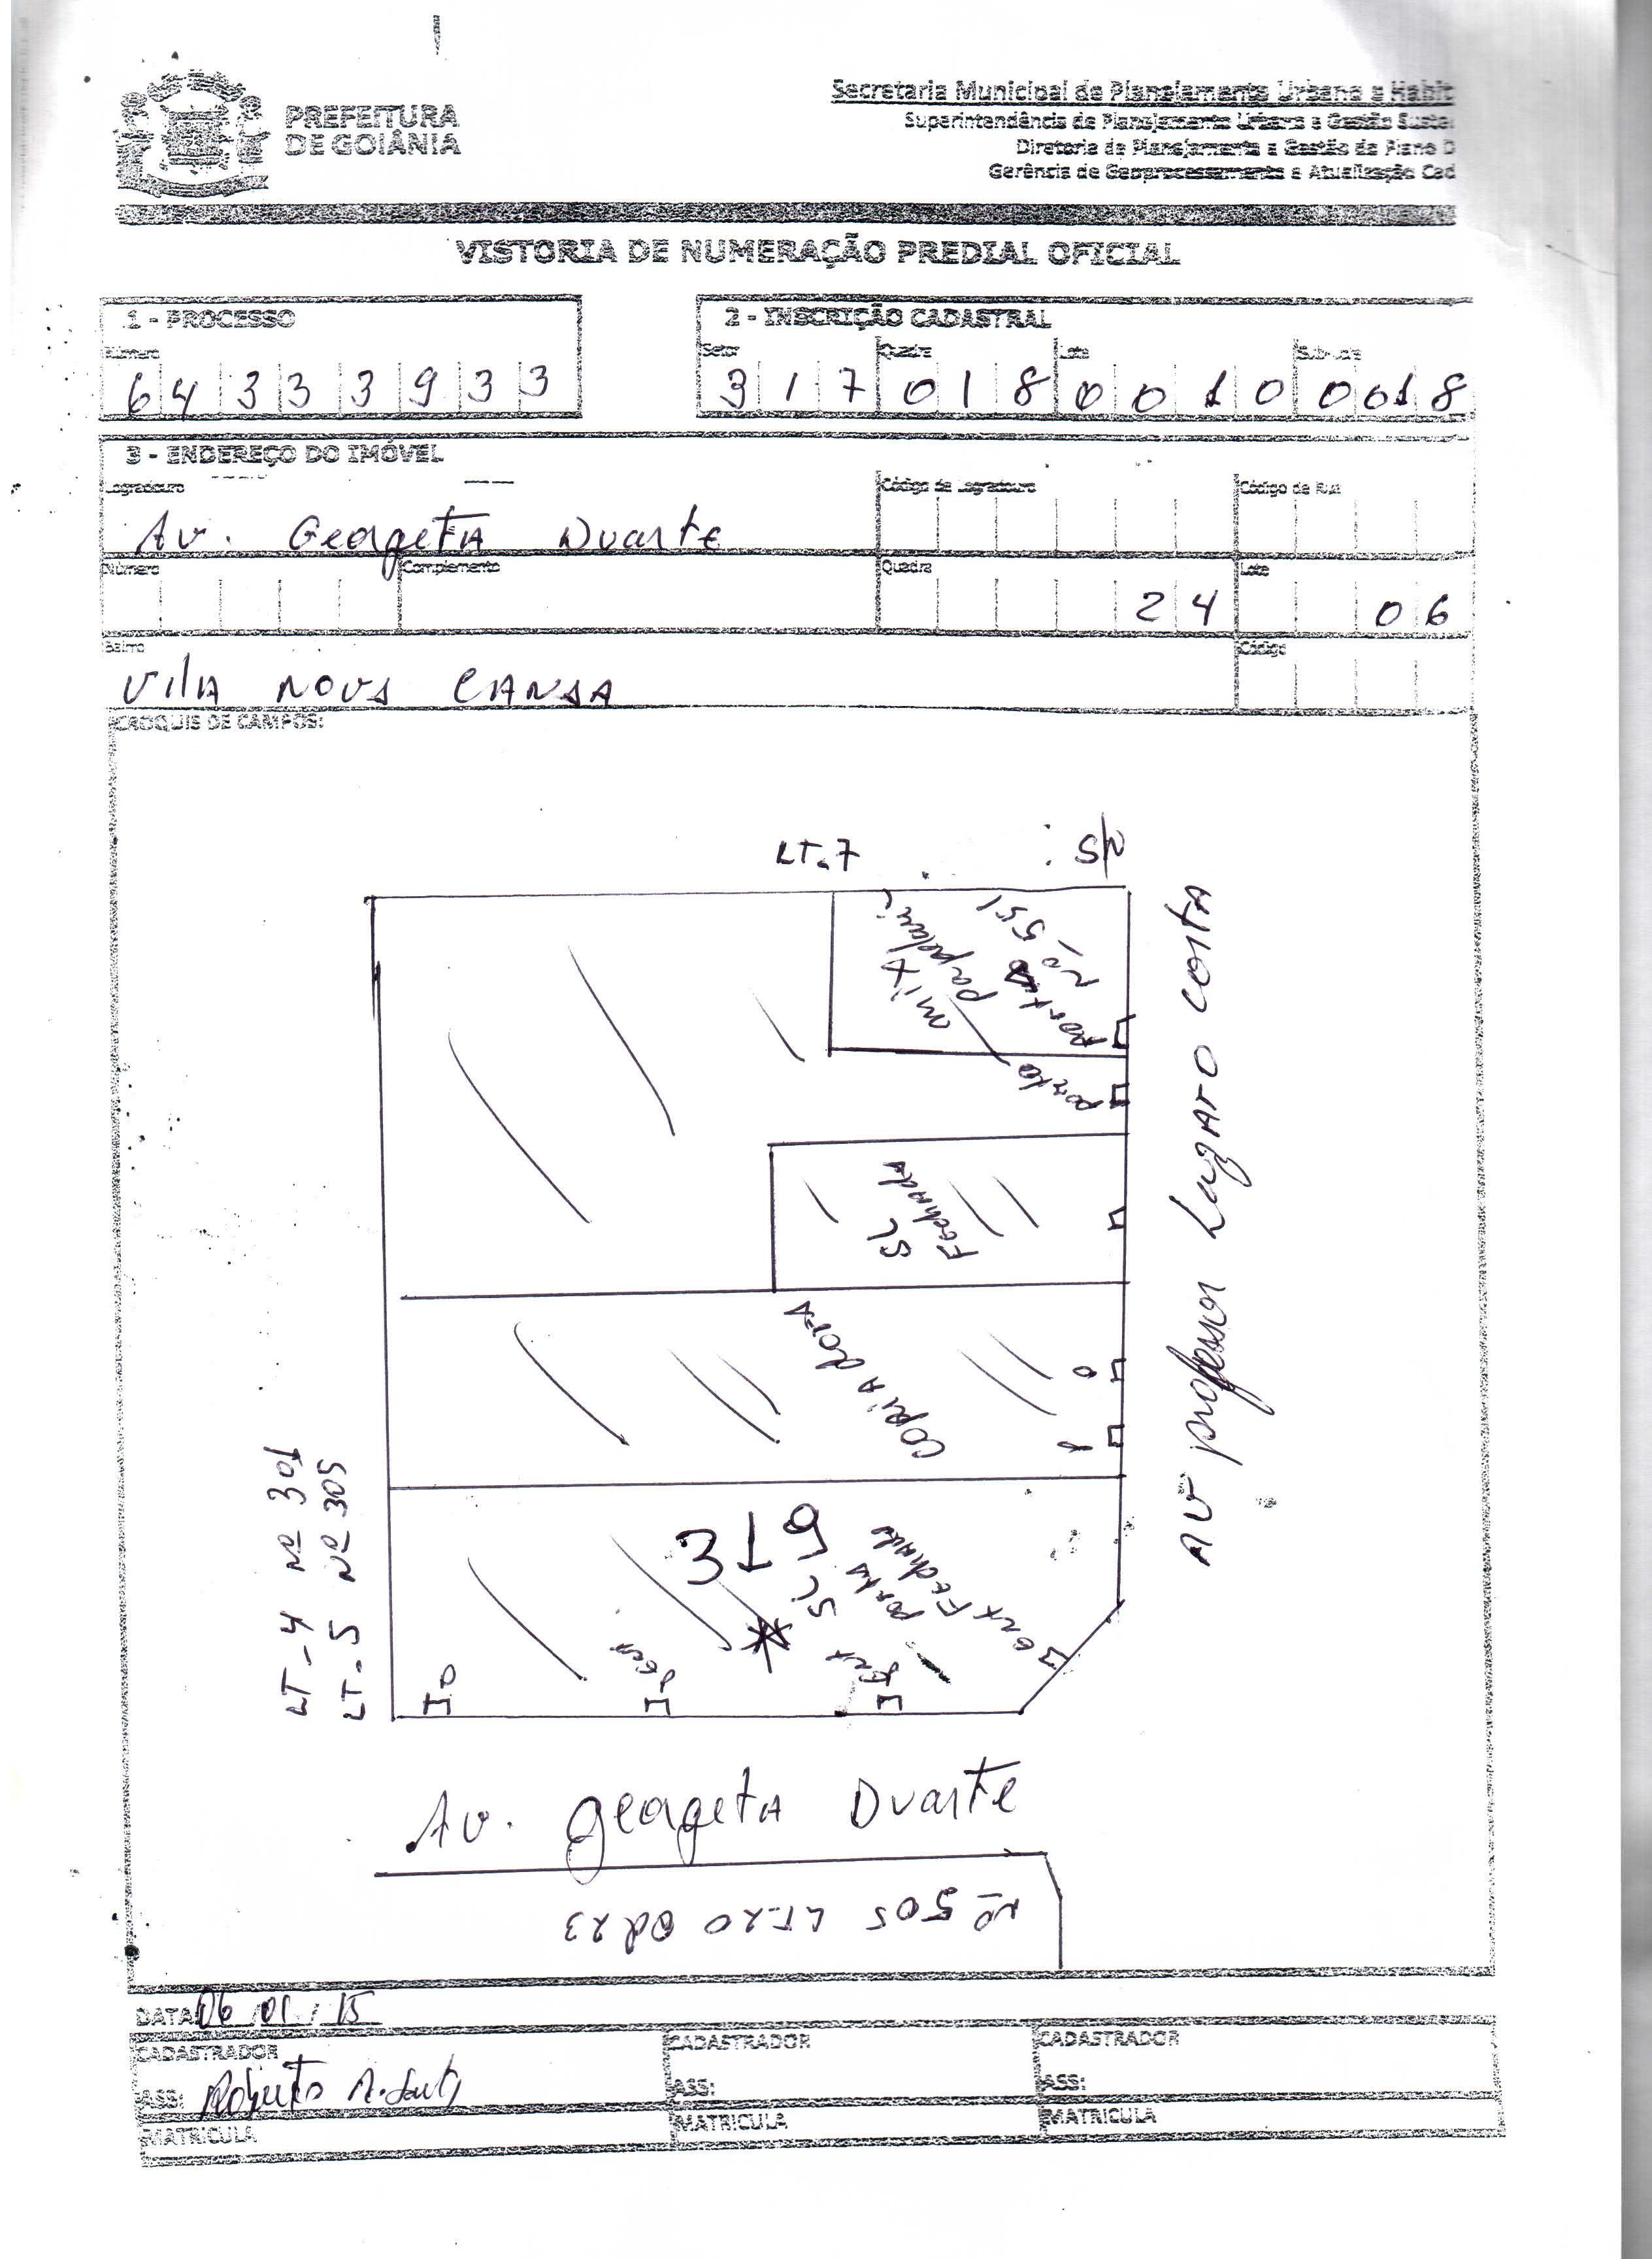 PREFEITURA
DE GOIÂNIA
Secretaria Municipal de Planejamento Urbano e Habit
Superintendência de Planejamento Urbano e Gestão Suste
Diretoria de Planejamento e Gestão do Plano D
Gerência de Geoprocessamento e Atualização Cad
VISTORIA DE NUMERAÇÃO PREDIAL OFICIAL
1 - PROCESSO
Número
6 4 3 3 3 9 3 3
2 - INSCRIÇÃO CADASTRAL
Setor Quadra Lote Sub-Lote
3 1 7 0 1 8 0 0 1 0 0 0 1 8
3 - ENDEREÇO DO IMÓVEL
Logradouro Código de Logradouro Código de Rua
Av. Georgeta Duarte
Número Complemento Quadra Lote
2 4 0 6
Bairro Código
Vila Nova Canaa
CROQUIS DE CAMPOS:
LT-7 S/N
mix
papelari
porta
Nº 551
porta
SL
Fechada
Copiadora
AV professor Lazaro Costa
LT-4 Nº 301
LT-5 Nº 305
319
SL
porta
ent Fechada
ent
Av. Georgeta Duarte
Nº 505 LT-20 Qd 23
DATA: 06/01/15
CADASTRADOR CADASTRADOR CADASTRADOR
ASS: Roberto ASS: ASS:
MATRICULA MATRICULA MATRICULA